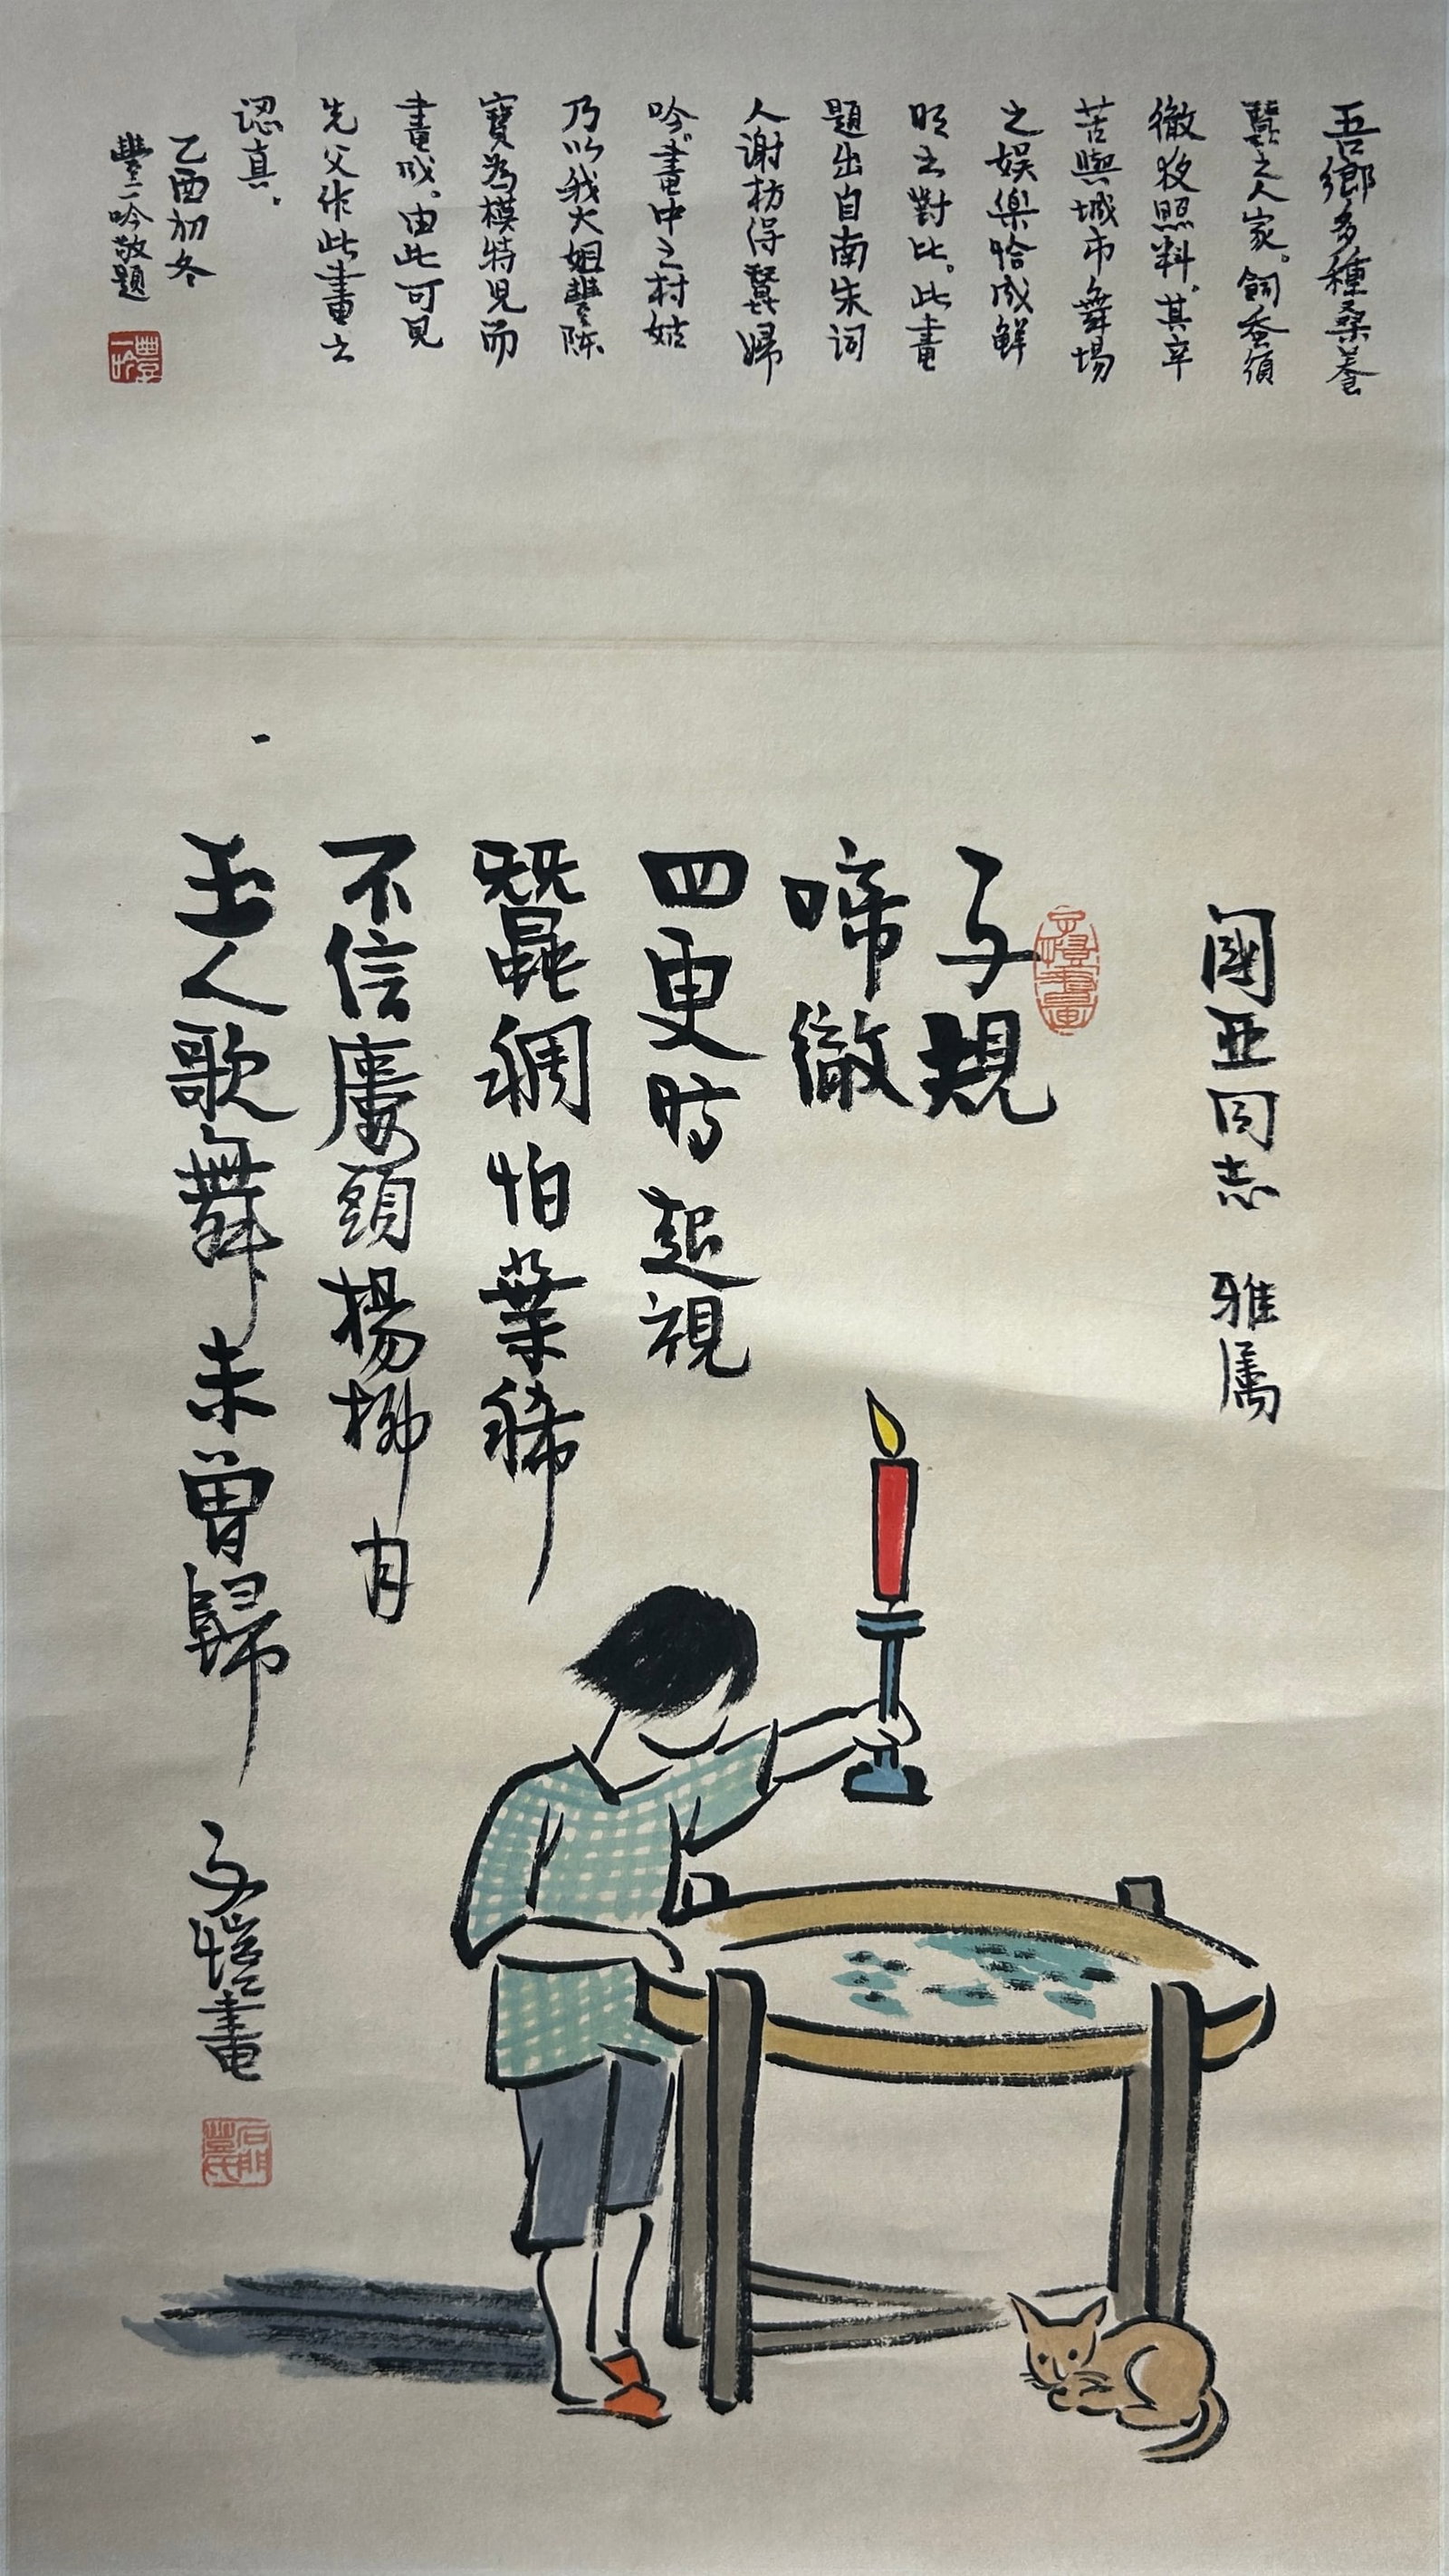 吾鄉多種桑養
蠶之人家。飼蚕須
徹夜照料。其辛
苦與城市舞場
之娛樂恰成鮮
明之對比。此畫
題出自南宋詞
人謝枋得蠶婦
吟。畫中之村姑
乃以我大姐豐陈
寶為模特兒而
畫成。由此可見
先父作此畫之
認真。
乙酉初冬
豐一吟敬題
豐一吟
國亚同志 雅属
子愷書畫
子規
啼徹
四更时起視
蠶稠怕葉稀
不信廔頭楊柳月
玉人歌舞未曾歸
子愷畫
石門豐氏